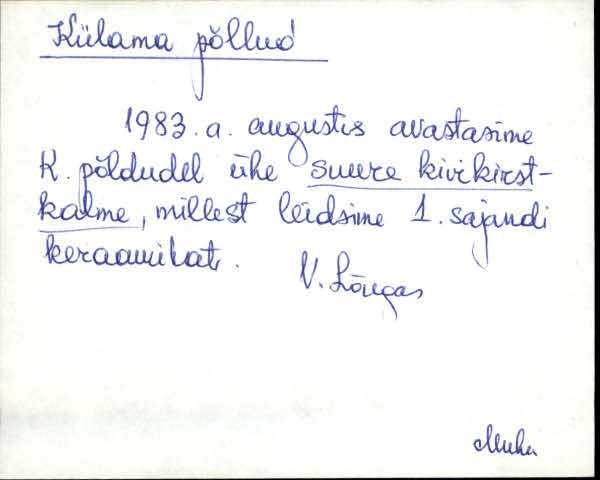 Külama põllud
1983. a. augustis avastasime
K. põldudel ühe suure kivikirst-
kalme, millest leidsime 1. sajandi
keraamikat.
V. Lõugas
Muhu